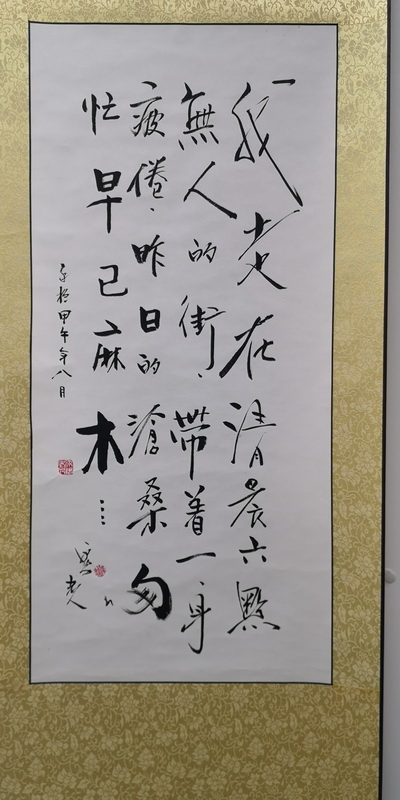 我走在清晨六點
無人的街、帶着一身
疲倦、昨日的滄桑匆
忙早已麻木…
甲午年八月